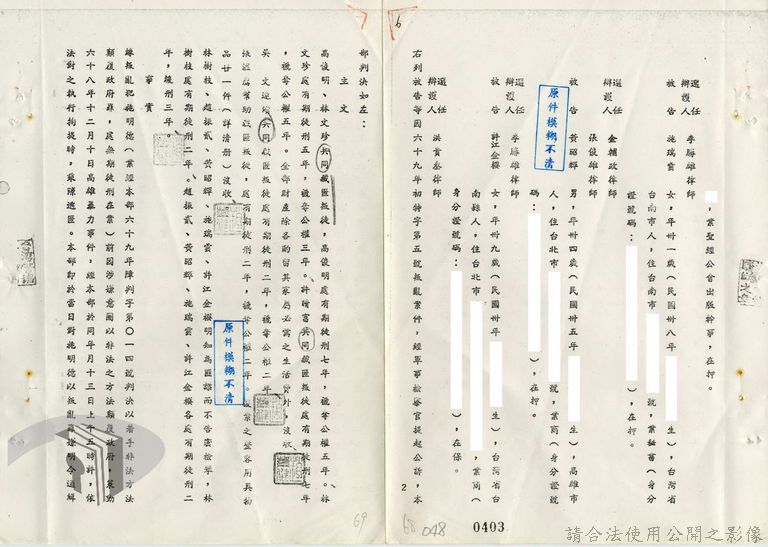 ，業聖經公會出版幹事，在押。
選任辯護人 李勝雄律師
被告 施瑞雲 女，年卅一歲（民國卅八年 生），台灣省
台南市人，住台南市 號，業秘書（身分
證號碼： ），在押。
選任辯護人 金輔政律師
張俊雄律師
被告 黃昭輝 男，年卅四歲（民國卅五年 生），高雄市
人，住台北市 號，業商（身分證號
碼： ），在押。
選任辯護人 李勝雄律師
被告 許江金櫻 女，年卅九歲（民國卅年 生），台灣省台
南縣人，住台北市 ，業商（
身分證號碼： ），在保。
選任辯護人 洪貴叁律師
右列被告等因六十九年初特字第五號叛亂案件，經軍事檢察官提起公訴，本
原件模糊不清
2
68
048
0403
部判決如左：
主文
高俊明、林文珍共同藏匿叛徒，高俊明處有期徒刑七年，褫奪公權五年。林
文珍處有期徒刑五年，褫奪公權三年。許晴富共同藏匿叛徒處有期徒刑七年
，褫奪公權五年。全部財產除各酌留其家屬必需之生活費外，沒收。
吳文 共同藏匿叛徒，處有期徒刑二年，褫奪公權二年。
幫助藏匿叛徒，處有期徒刑二年，褫奪公權二年。 業之 容用具物
品廿一件（詳清册）沒收。
林樹枝、趙振貳、黃昭輝、施瑞雲、許江金櫻明知為匪諜而不告密檢舉，林
樹枝處有期徒刑二年。趙振貳、黃昭輝、施瑞雲、許江金櫻各處有期徒刑二
年，緩刑三年。
事實
緣叛亂犯施明德（業經本部六十九年障判字第〇一四號判決以着手非法方法
顛覆政府罪，處無期徒刑在案）前因涉嫌意圖以非法之方法顛覆政府，策動
六十八年十二月十日高雄暴力事件，經本部於同年月十三日上午五時許，依
法對之執行拘提時，乘隙逃匿。本部即於當日對施明德以叛亂罪嫌明令通緝
原件模糊不清
69
請合法使用公開之影像